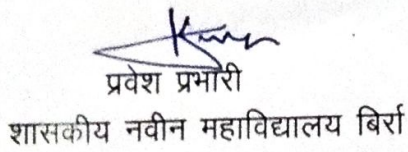 प्रवेश प्रभारी
शासकीय नवीन महाविद्यालय बिर्रा